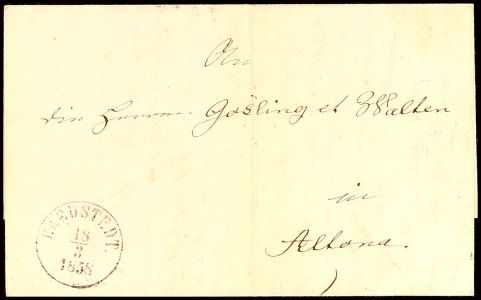 An
die Herren Gosling et Walten
in
Altona.
BREDSTEDT.
18
3
1858